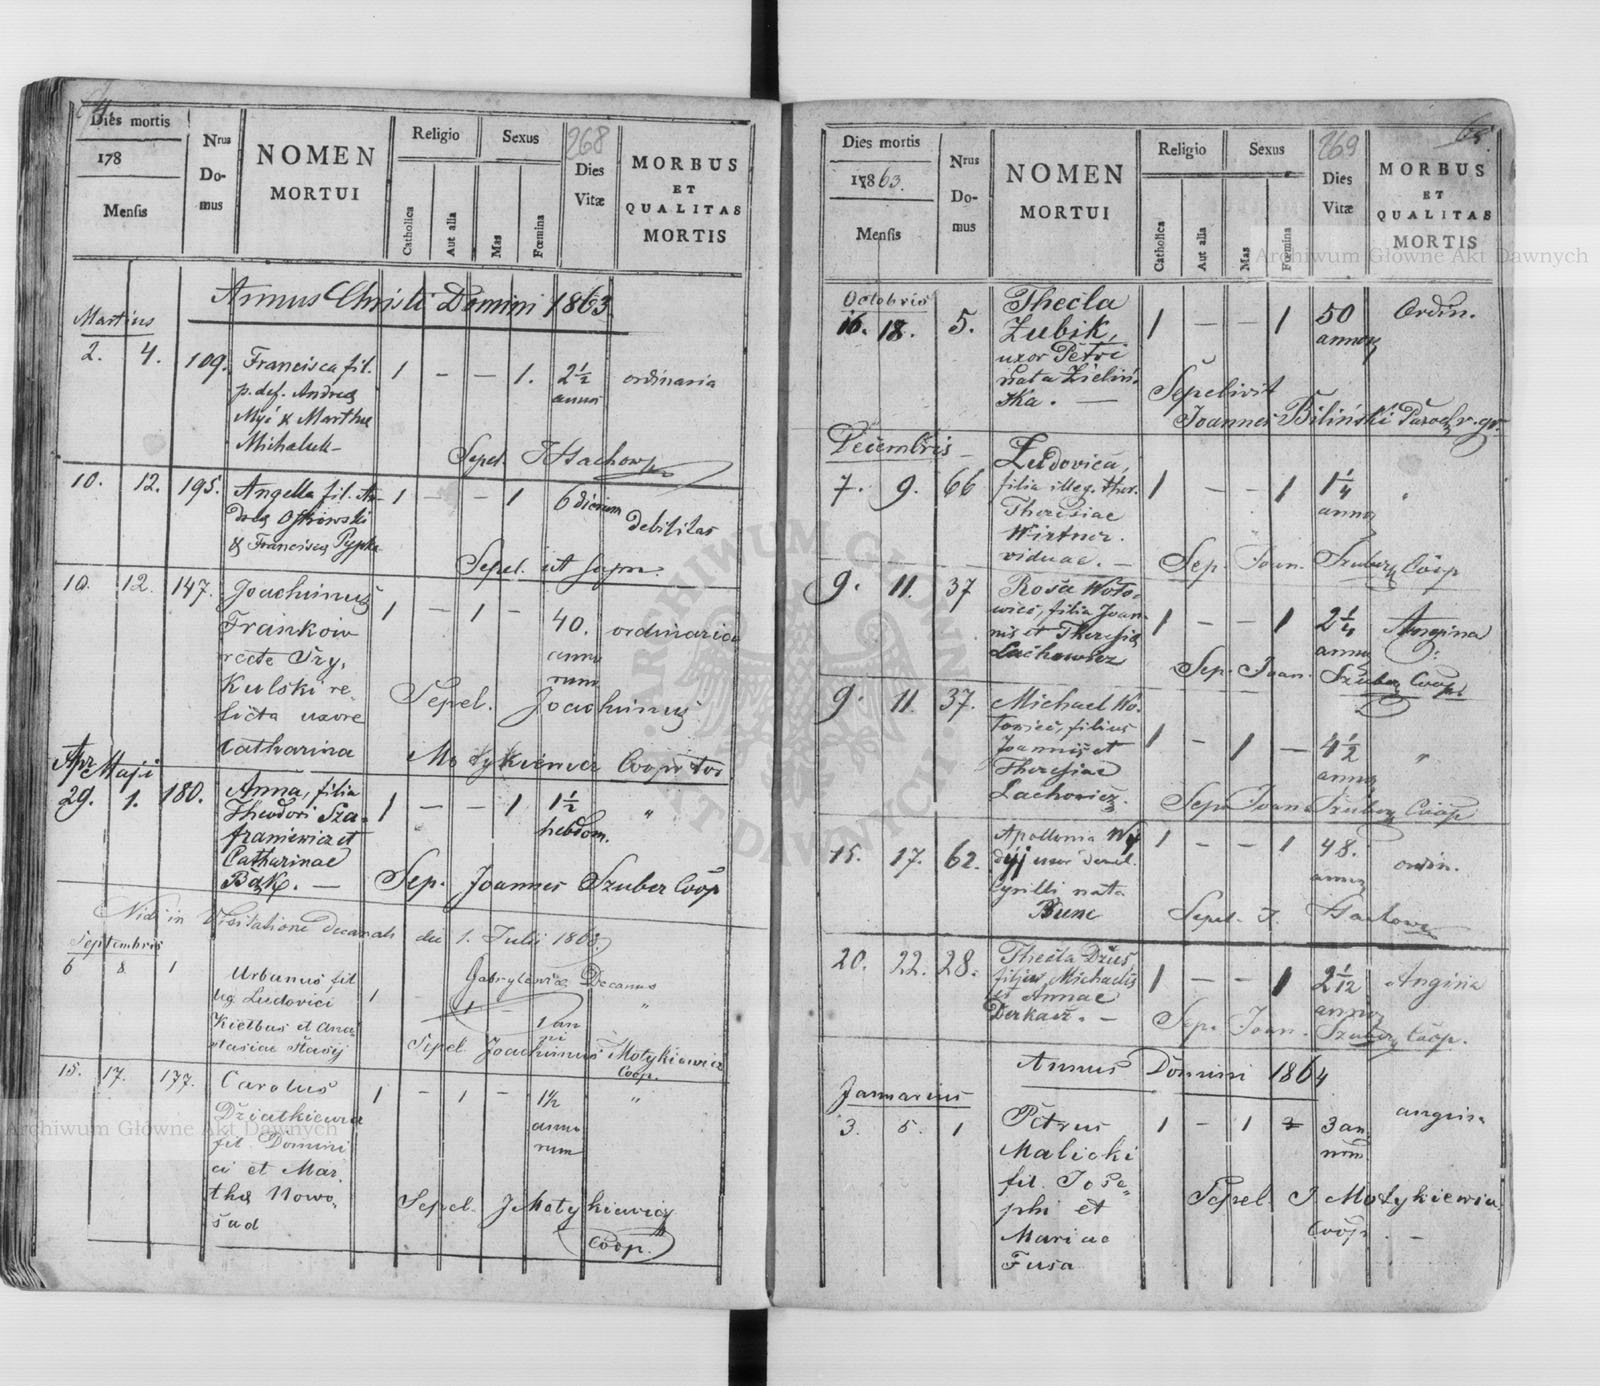 Dies mortis
178
Mensis
Nrus
Do-
mus
NOMEN
MORTUI
Religio
Catholica
Aut alia
Sexus
Mas
Fœmina
268
Dies
Vitæ
MORBUS
ET
QUALITAS
MORTIS
Annus Christi Domini 1863
Martius
2. 4. 109. Francisca fil. 1 - - 1. 2½ ordinaria
p. def. Andreę annor
Myć & Marthae
Michaluk
Sepel. J Hachow
10. 12. 195. Angella fil. An- 1 - - 1 6 dierum debilitas
dreę
& Franciscę Pypka
Sepel. ut supra.
10. 12. 147. Joachimus 1 - 1 - 40. ordinaria
Frankow anno
recte Trzy, rum
Kulski re,
licta uxore
Catharina
Sepel. Joachimus
Motykiewicz Coop tor
Apr Maji
29. 1. 180. Anna, filia 1 - - 1 1½ "
Theodori Sza- hebdom.
franiewicz et
Catharinae
Bąk. —
Sep. Joannes Szuber Coop
Vidi in Visitatione decanali die 1. Julii 1863
Gabrylewicz Decanus
Septembris
6 8 1 Urbanus fil 1 - 1 - 1 an "
leg. Ludovici ni
Kiełbus et Ana,
stasiae Stasij
Sepel Joachimus Motykiewicz
Coop.
15. 17. 177. Carolus 1 - 1 - 1½ "
Dziatkiewicz anno
fil Domini rum
ci et Mar,
thę Nowo,
sad
Sepel. J Motykiewicz
Coop.
68.
Dies mortis
178 63.
Mensis
Nrus
Do-
mus
NOMEN
MORTUI
Religio
Catholica
Aut alia
Sexus
Mas
Fœmina
269
Dies
Vitæ
MORBUS
ET
QUALITAS
MORTIS
Octobris
16. 18. 5. Thecla 1 — — 1 50 Ordin.
Zubik, annor
uxor Petri
nata Zieliń-
ska. —
Sepelivit
Joannes Biliński Paroch r. gr.
Decembris
7. 9. 66 Ludovica, 1 - - 1 1¼ "
filia illeg. thor. annor
Theresiae
Wirtner.
viduae. —
Sep. Joan. Szuber Coop
9. 11. 37 Rosa Woto- 1 - - 1 2¼ Angina
wicz, filia Joan- annor
nis et Theresię
Lachowicz
Sep. Joan. Szuber Coop.
9. 11. 37. Michael Wo- 1 - 1 — 4½ "
towicz, filius annor
Joannis et
Theresiae
Lachowicz.
Sep. Joan. Szuber Coop
15. 17. 62. Apollonia 1 - - 1 48. ordin.
uxor annor
Cyrilli nata
Bunc
Sepel. J. Hachow
20. 22. 28. Thecla Dzus 1 - - 1 2 1/12 Angina
filia Michaelis annor
et Annae
Derkacz. —
Sep. Joan. Szuber Coop.
Annus Domini 1864
Januarius
3. 5. 1 Petrus 1 - 1 3 an angina
Malicki norum
fil. Jose,
phi et
Mariae
Fusa
Sepel. J Motykiewicz
Coop. —
Archiwum Główne Akt Dawnych
Archiwum Główne Akt Dawnych
ARCHIWUM GŁÓWNE AKT DAWNYCH